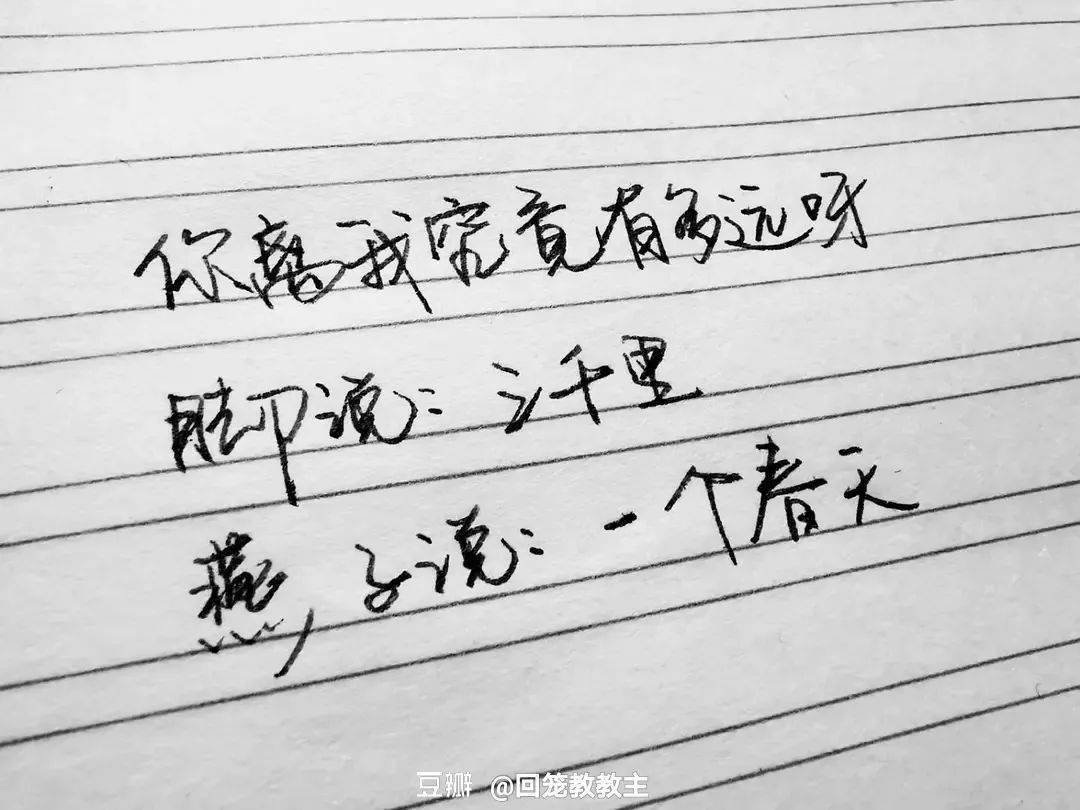 你离我究竟有多远呀
脚说：三千里
燕子说：一个春天
豆瓣 @回笼教教主